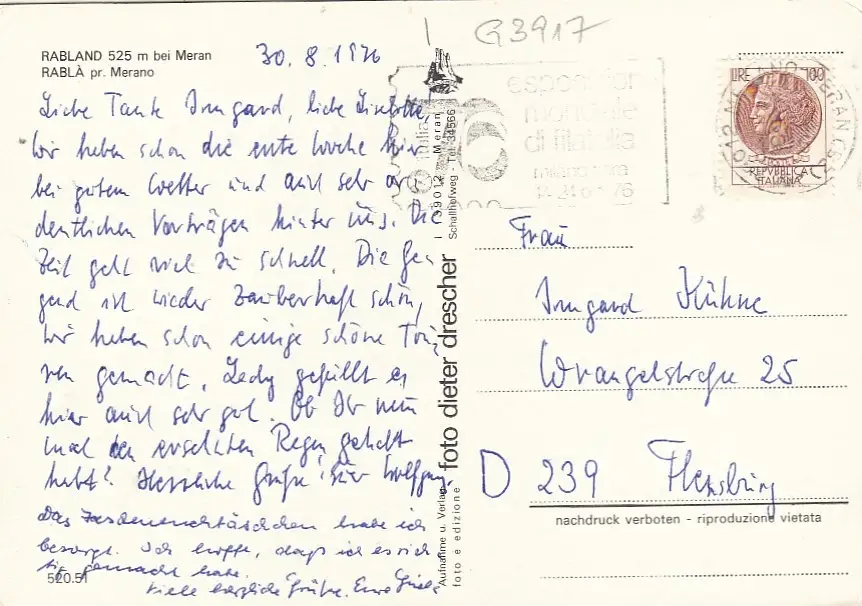 G3917
RABLAND 525 m bei Meran
RABLÀ pr. Merano
30. 8. 1976
Liebe Tante Irmgard, liebe Liselotte,
wir haben schon die erste Woche hier
bei gutem Wetter und auch sehr or-
dentlichen Vorträgen hinter uns. Die
Zeit geht viel zu schnell. Die Ge-
gend ist wieder zauberhaft schön,
wir haben schon einige schöne Tou-
ren gemacht. gefällt es
hier auch sehr gut. Ob Ihr nun
mal den ersehnten Regen gehabt
habt? Herzliche Grüße Wolfgang
Das habe ich
besorgt. Ich hoffe, daß ich es rich-
tig gemacht habe.
Viele herzliche Grüße, Eure Gisela
520.51
foto dieter drescher
I 39012 Meran
Schallhofweg - Tel. 34566
Aufnahme u. Verlag
foto e edizione
esposizion
mondiale
di filatelia
milano
14-24 76
LIRE 100
REPVBBLICA
ITALIANA
Frau
Irmgard Kühne
Wrangelstraße 25
D 239 Flensburg
nachdruck verboten - riproduzione vietata